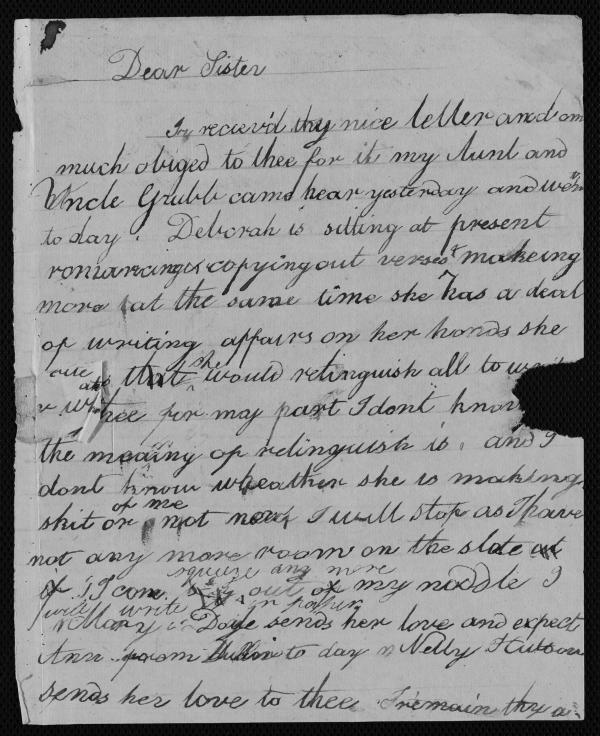 Dear Sister
I recievd thy nice letter and am
much obiged to thee for it my Aunt and
Uncle Grubb came hear yesterday and went
to day. Deborah is sitting at present
romancing & copying out verses & makeing
more at the same time she has a deal
of writing affairs on her hands she
that she would relinguish all to write
thee for my part I dont know
the meaing of relinguish is. and I
dont know wheather she is making
skit of me or not now I will stop as I have
not any more room on the slate
if I can squeeze any more out of my noddle I
will write
Mary Doyle sends her love and expect
Ann from to day Nelly
sends her love to thee I remain thy a